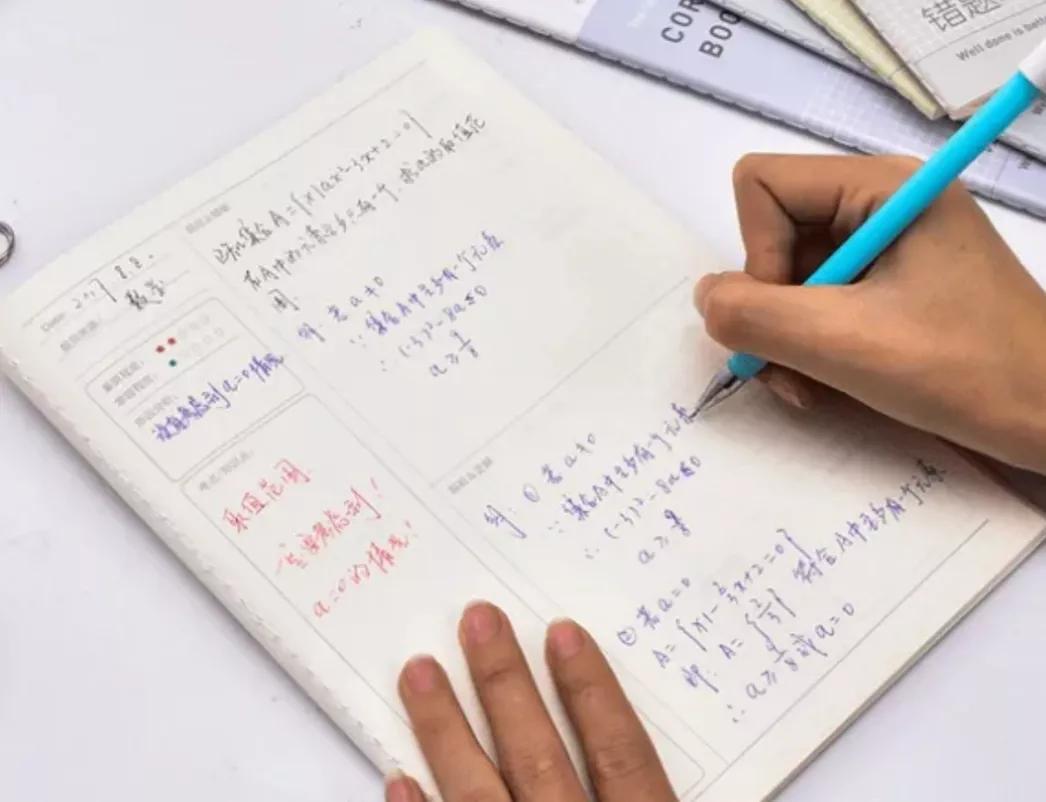 COR
BOO
错题
Well done is bett
Date: 2017 8.8.
数学
没有考虑到a=0情况
取值范围
一定要考虑到!
a=0的情况!
已知集合A={x|ax²-3x+2=0}
若A中的元素至多只有一个,求a的取值范
围.
解:若a≠0
∵集合A中至多有一个元素
∴(-3)²-8a≤0
a≥9/8
解:①若a≠0
∵集合A中至多有一个元素
∴(-3)²-8a≤0
a≥9/8
②若a=0
A={x|-3x+2=0}
即:A={2/3} 符合A中至多有一个元素
∴a≥9/8或a=0